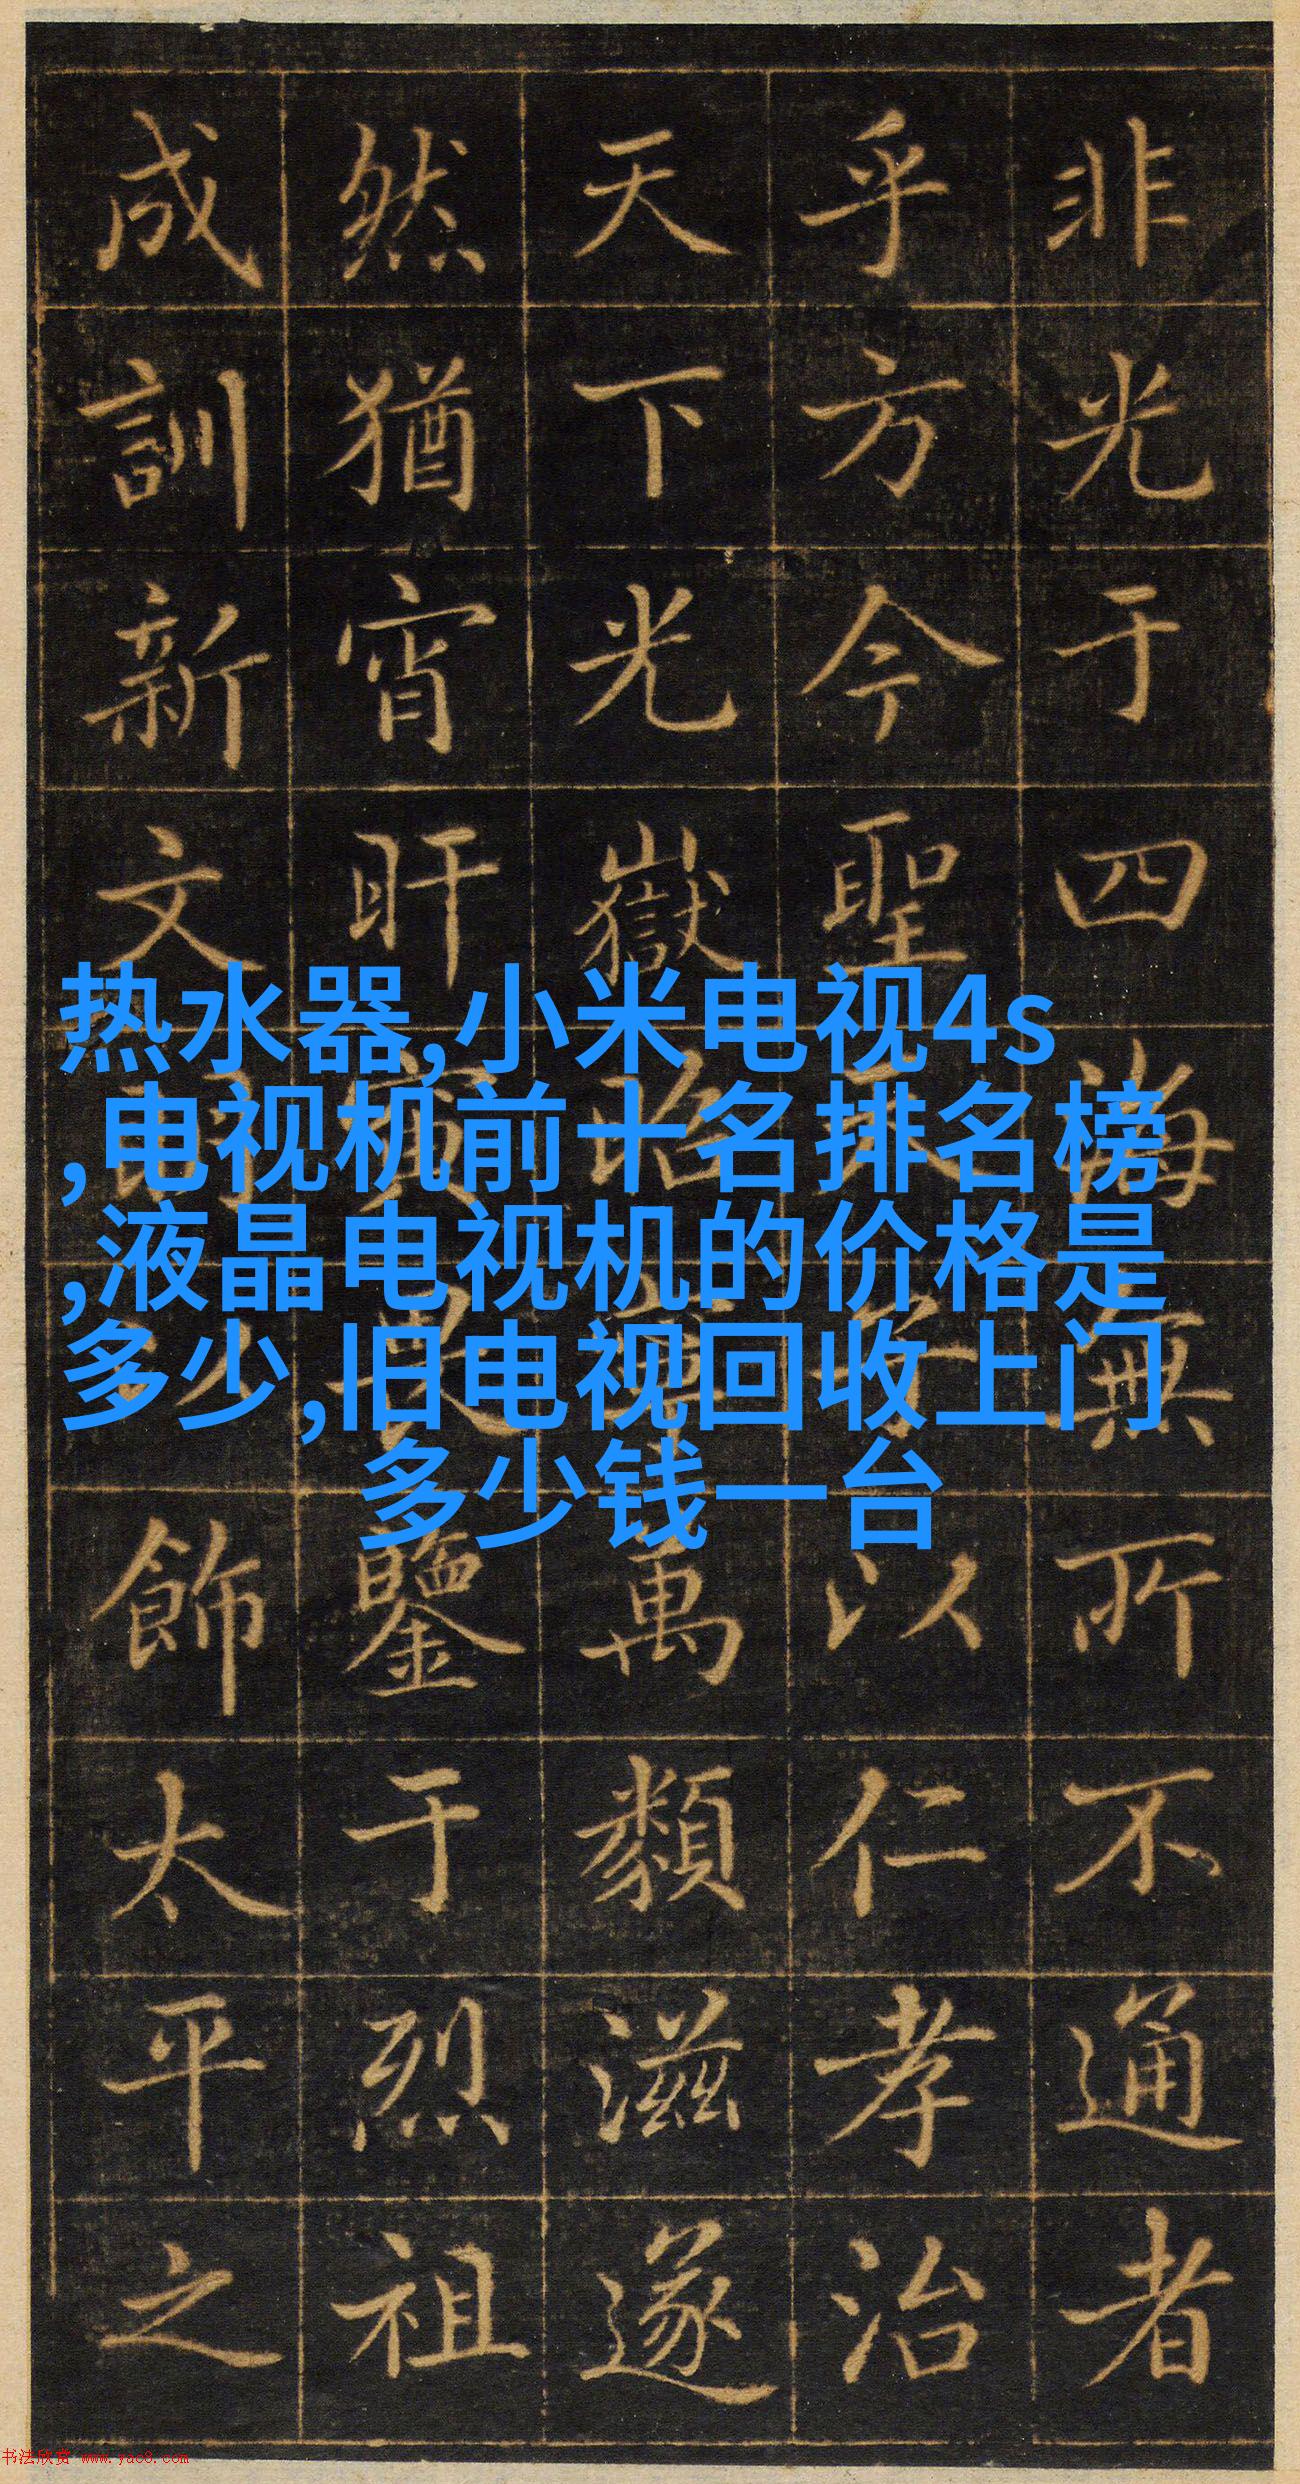 非光于四海無所不通者
乎方今聖子以仁孝治
天下光嶽昭萬類滋遂
然猶宵旰寅畏鑒于烈祖
成訓新文明以飾太平之
热水器,小米电视4s
,电视机前十名排名榜
,液晶电视机的价格是
多少,旧电视回收上门
多少钱一台
书法欣赏 www.yac8.com